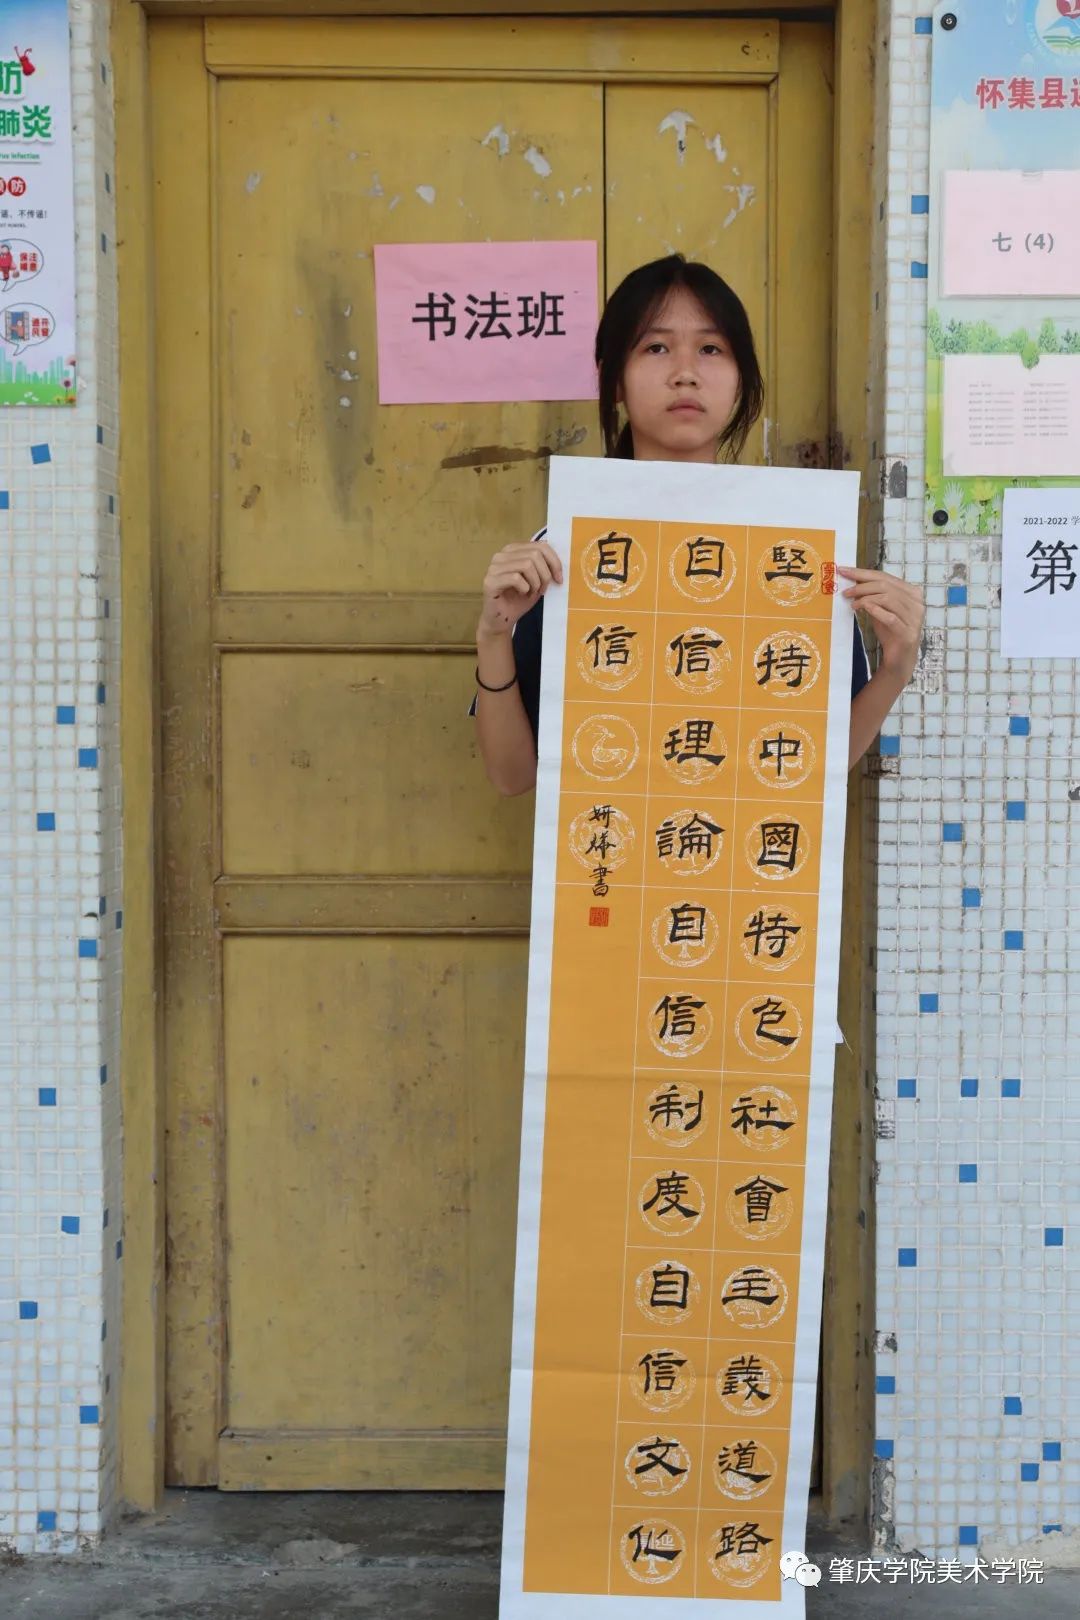 防
肺炎
rus infection
谣、不传谣!
书法班
怀集县
七 (4)
2021-2022 学
第
堅持中國特色社會主義道路
自信理論自信制度自信文化
自信
妍書
肇庆学院美术学院